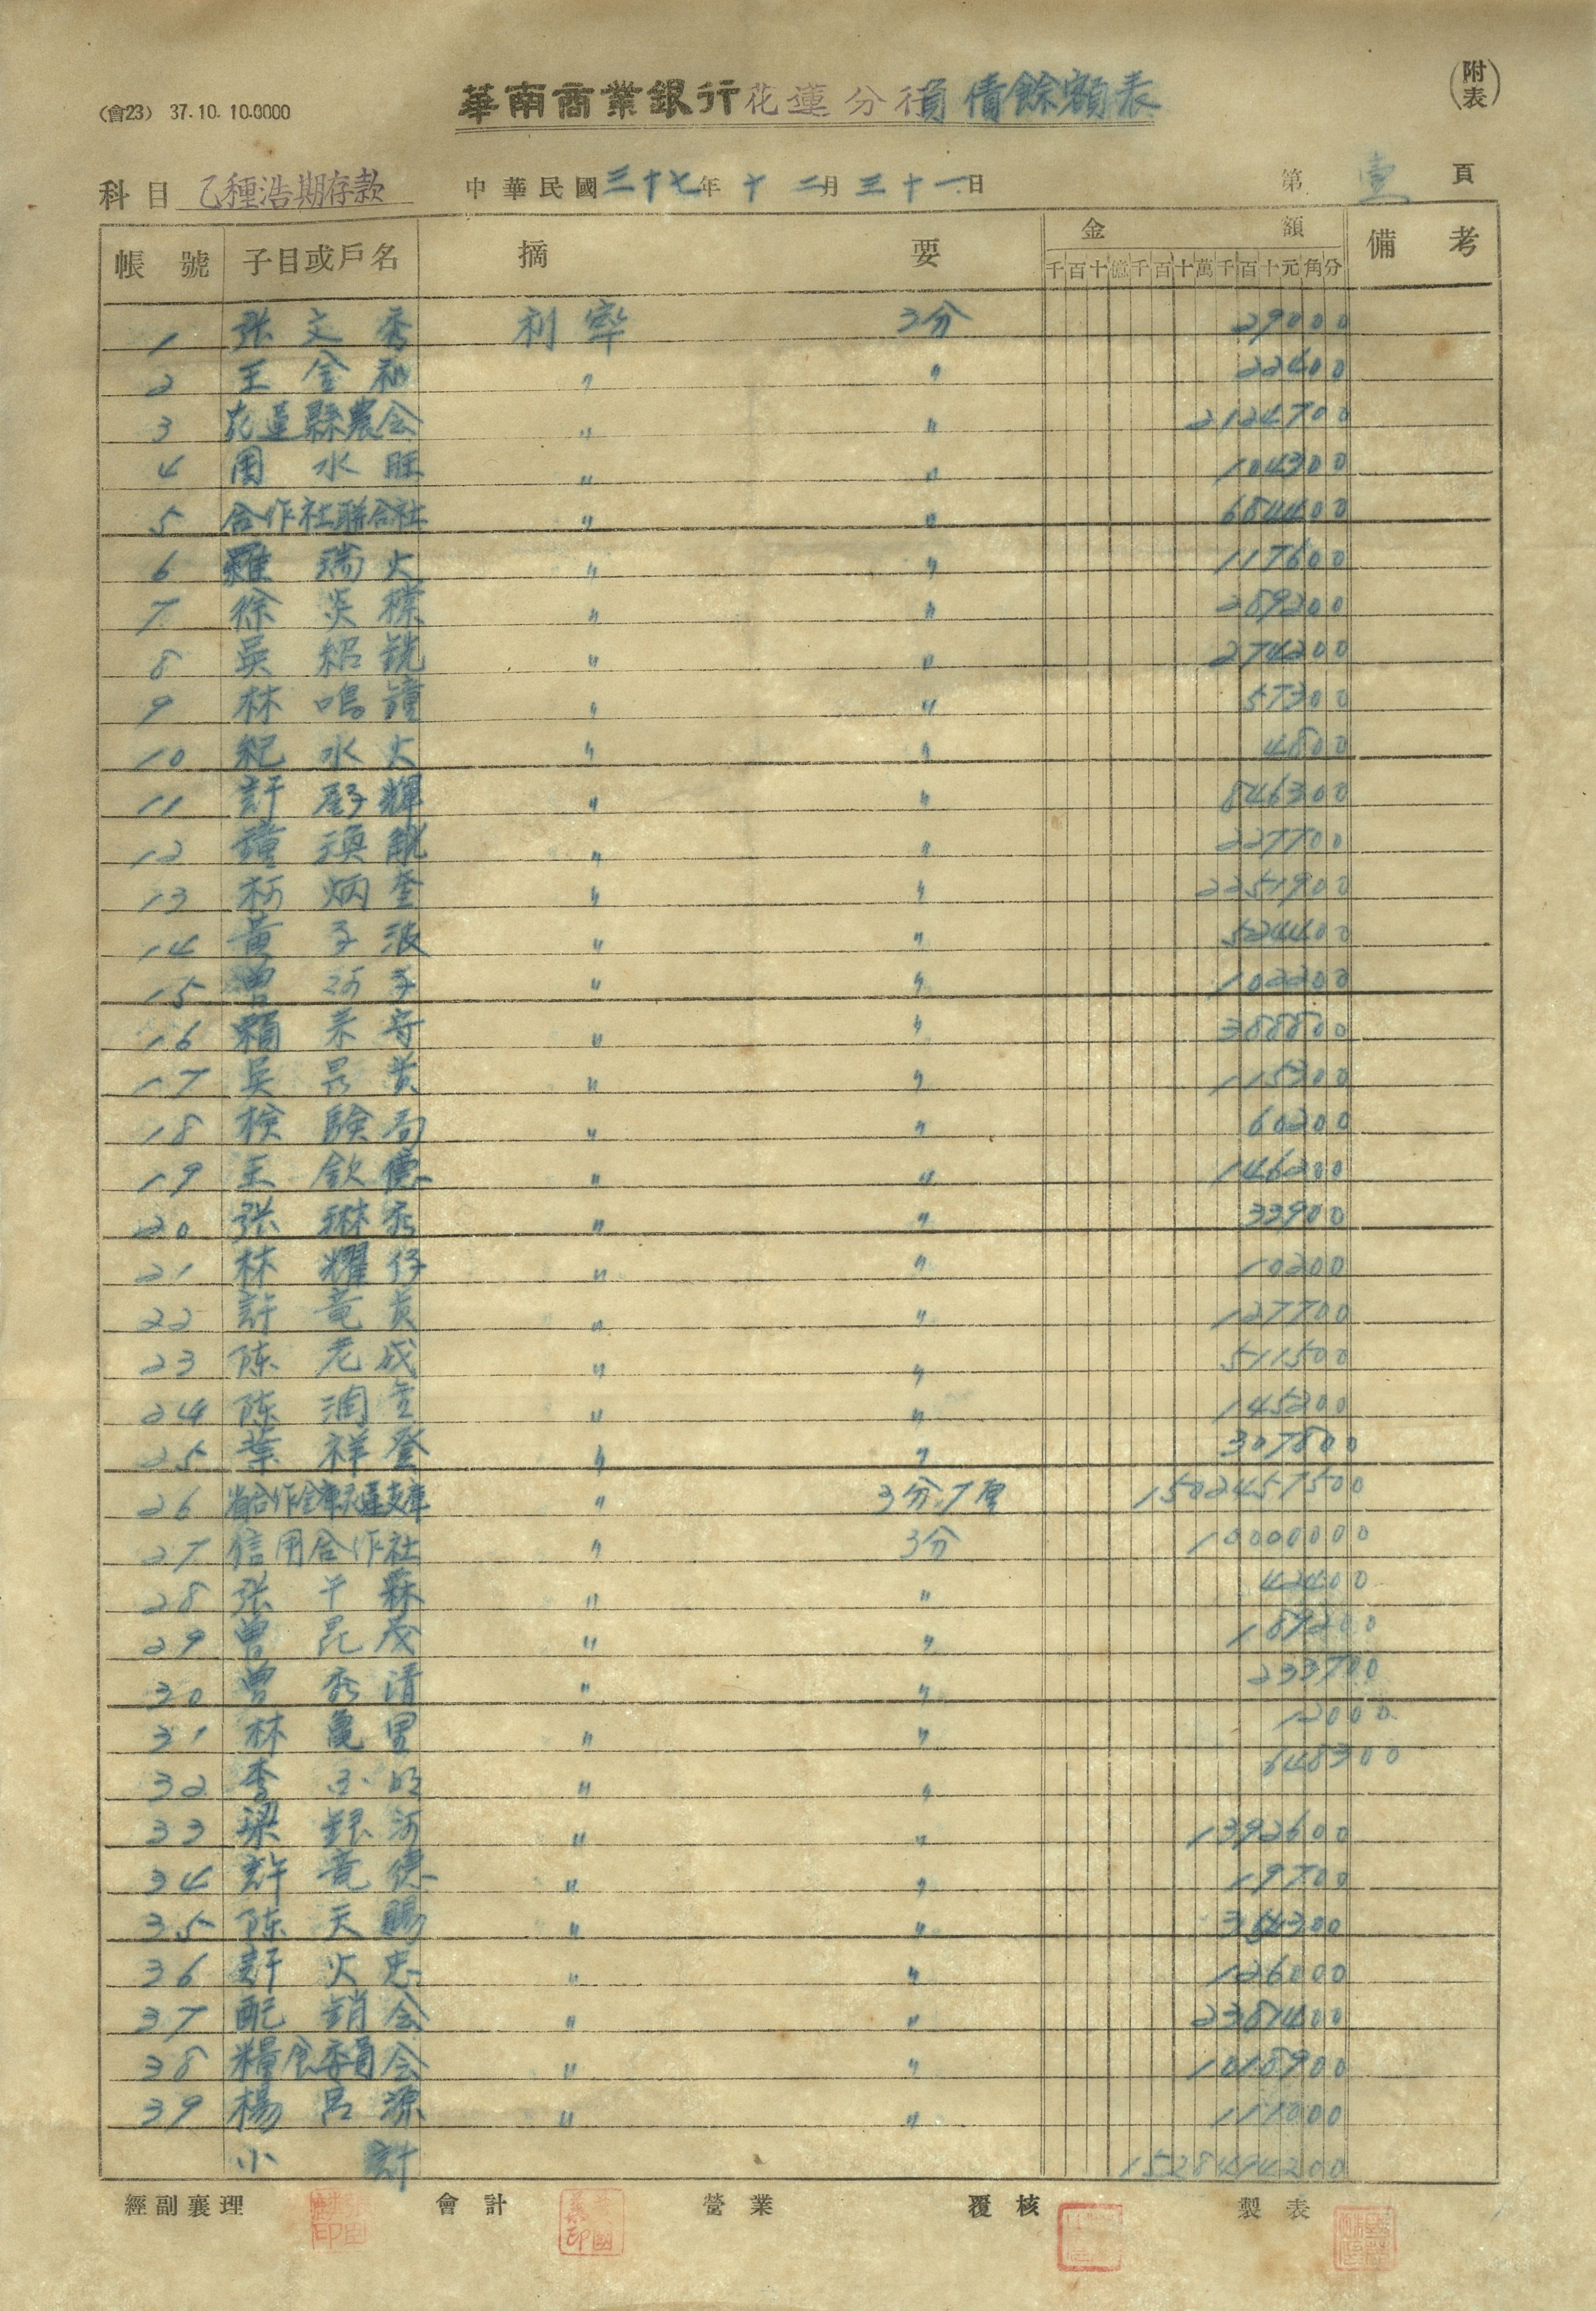 (會23) 37.10. 10.0000
華南商業銀行花蓮分行負債餘額表
(附表)
科目 乙種浩期存款 中華民國三十七年十二月三十一日 第壹頁
帳號 子目或戶名 摘要 金額 備考
千百十億千百十萬千百十元角分
1 张文秀 利率 3分 29000
2 王金和 〃 〃 22400
3 花蓮縣農会 〃 〃 2124700
4 周水旺 〃 〃 104300
5 合作社聯合社 〃 〃 684400
6 羅瑞火 〃 〃 117600
7 徐炎 〃 〃 289200
8 吳紹銑 〃 〃 274200
9 林鳴鐘 〃 〃 57300
10 紀水火 〃 〃 4800
11 許 輝 〃 〃 846300
12 鐘 〃 〃 227700
13 柯炳奎 〃 〃 2251900
14 黃子波 〃 〃 524400
15 曾阿 〃 〃 102200
16 賴 〃 〃 388800
17 吳 〃 〃 115300
18 檢驗局 〃 〃 60200
19 王欽德 〃 〃 146200
20 张琳秀 〃 〃 33900
21 林耀仔 〃 〃 10200
22 許竜貞 〃 〃 127700
23 陈老成 〃 〃 511500
24 陈潤立 〃 〃 145200
25 葉祥登 〃 〃 307800
26 省合作金庫花蓮支庫 〃 3分7厘 1502457500
27 信用合作社 〃 3分 10000000
28 张 霖 〃 〃 42400
29 曾昆茂 〃 〃 189200
30 曾秀清 〃 〃 233700
31 林 里 〃 〃 12000
32 李 〃 〃 648300
33 梁銀河 〃 〃 1392600
34 許竜德 〃 〃 19700
35 陈天賜 〃 〃 354300
36 許火忠 〃 〃 126000
37 配銷会 〃 〃 2387400
38 糧食委員会 〃 〃 1018900
39 楊呂源 〃 〃 111000
小計 1528414200
經副襄理 會計 營業 覆核 製表